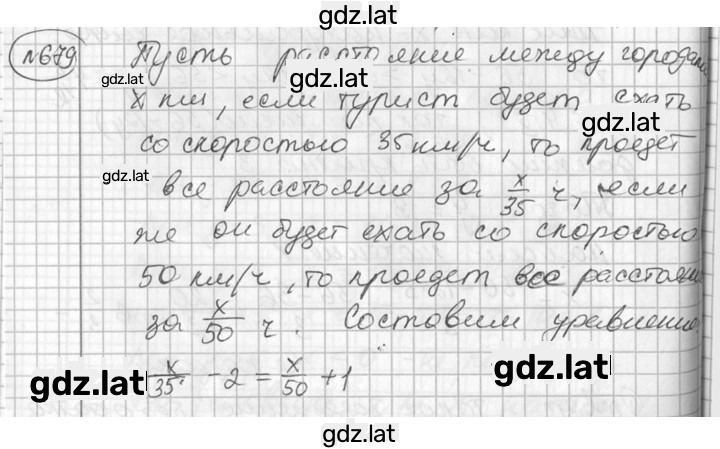 gdz.lat
№679 Пусть расстояние между городами
gdz.lat gdz.lat
x км, если турист будет ехать
gdz.lat
со скоростью 35 км/ч, то проедет
gdz.lat
все расстояние за x/35 ч, если
же он будет ехать со скоростью
50 км/ч, то проедет все расстояние
за x/50 ч. Составим уравнение
gdz.lat x/35 - 2 = x/50 + 1 gdz.lat
gdz.lat